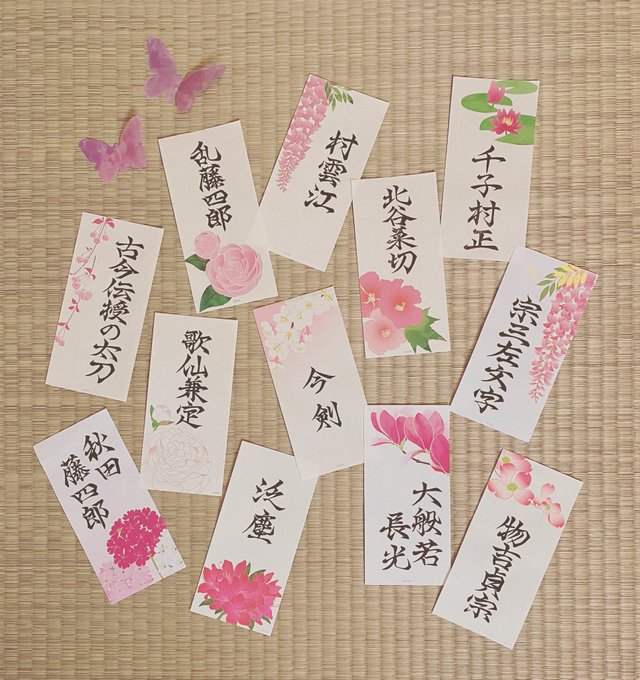 乱藤四郎
村雲江
千子村正
北谷菜切
古今伝授の太刀
歌仙兼定
今剣
宗三左文字
秋田
藤四郎
泛塵
大般若
長光
物吉貞宗